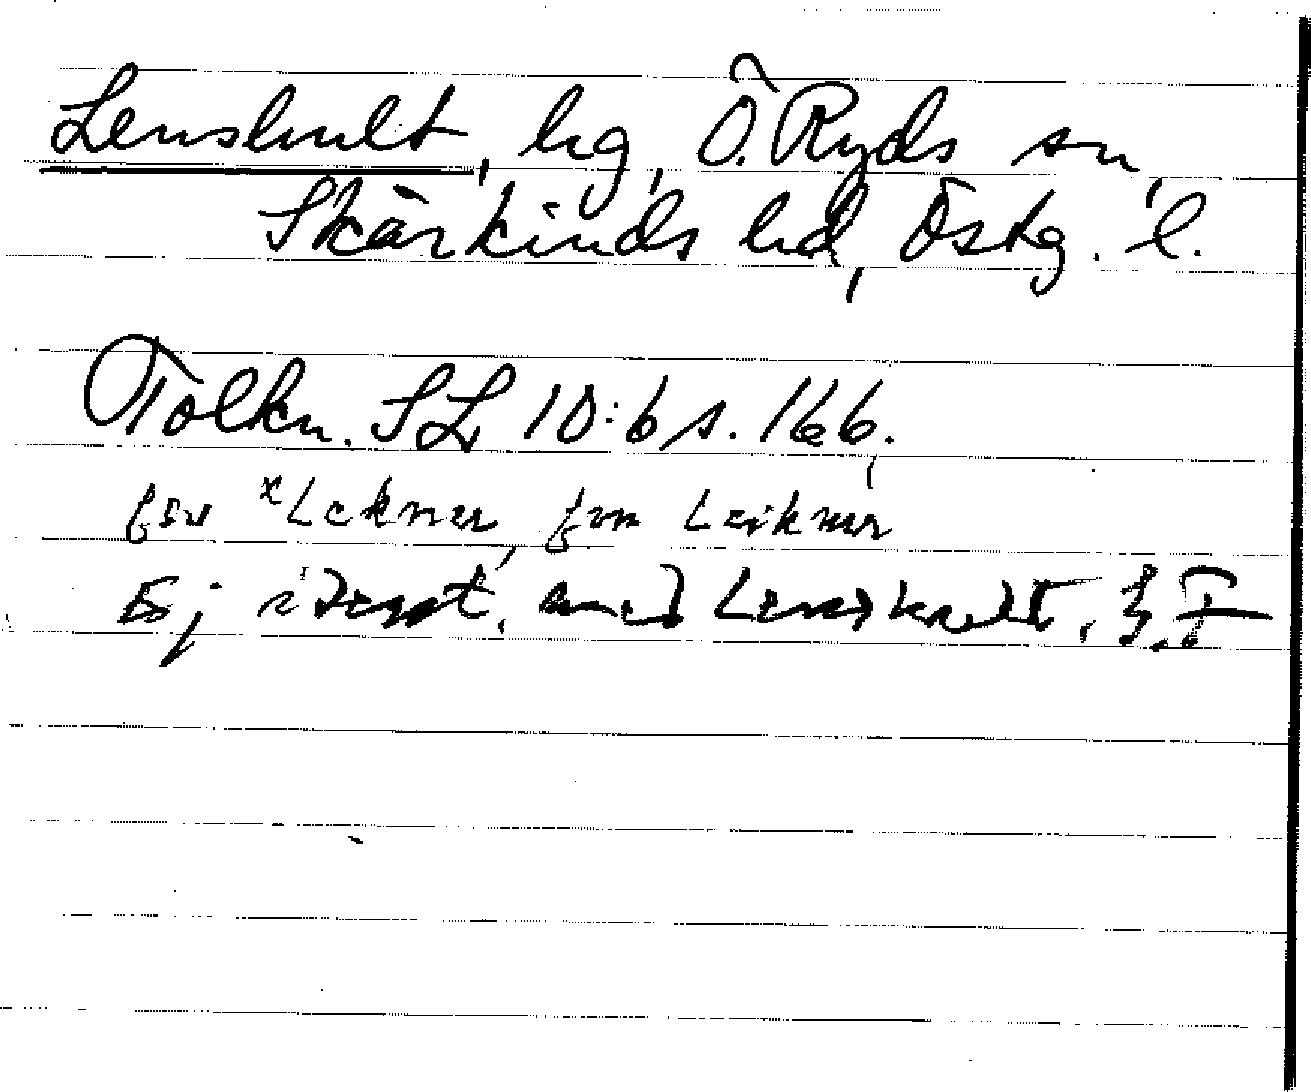 Lenshult, hg, Ö. Ryds sn,
Skärkinds hd, Östg. l.
Tolkn. SL 10:6 s. 166.
fsv *Lekner, fvn Leiknir
Ej identt. med Lenshult,